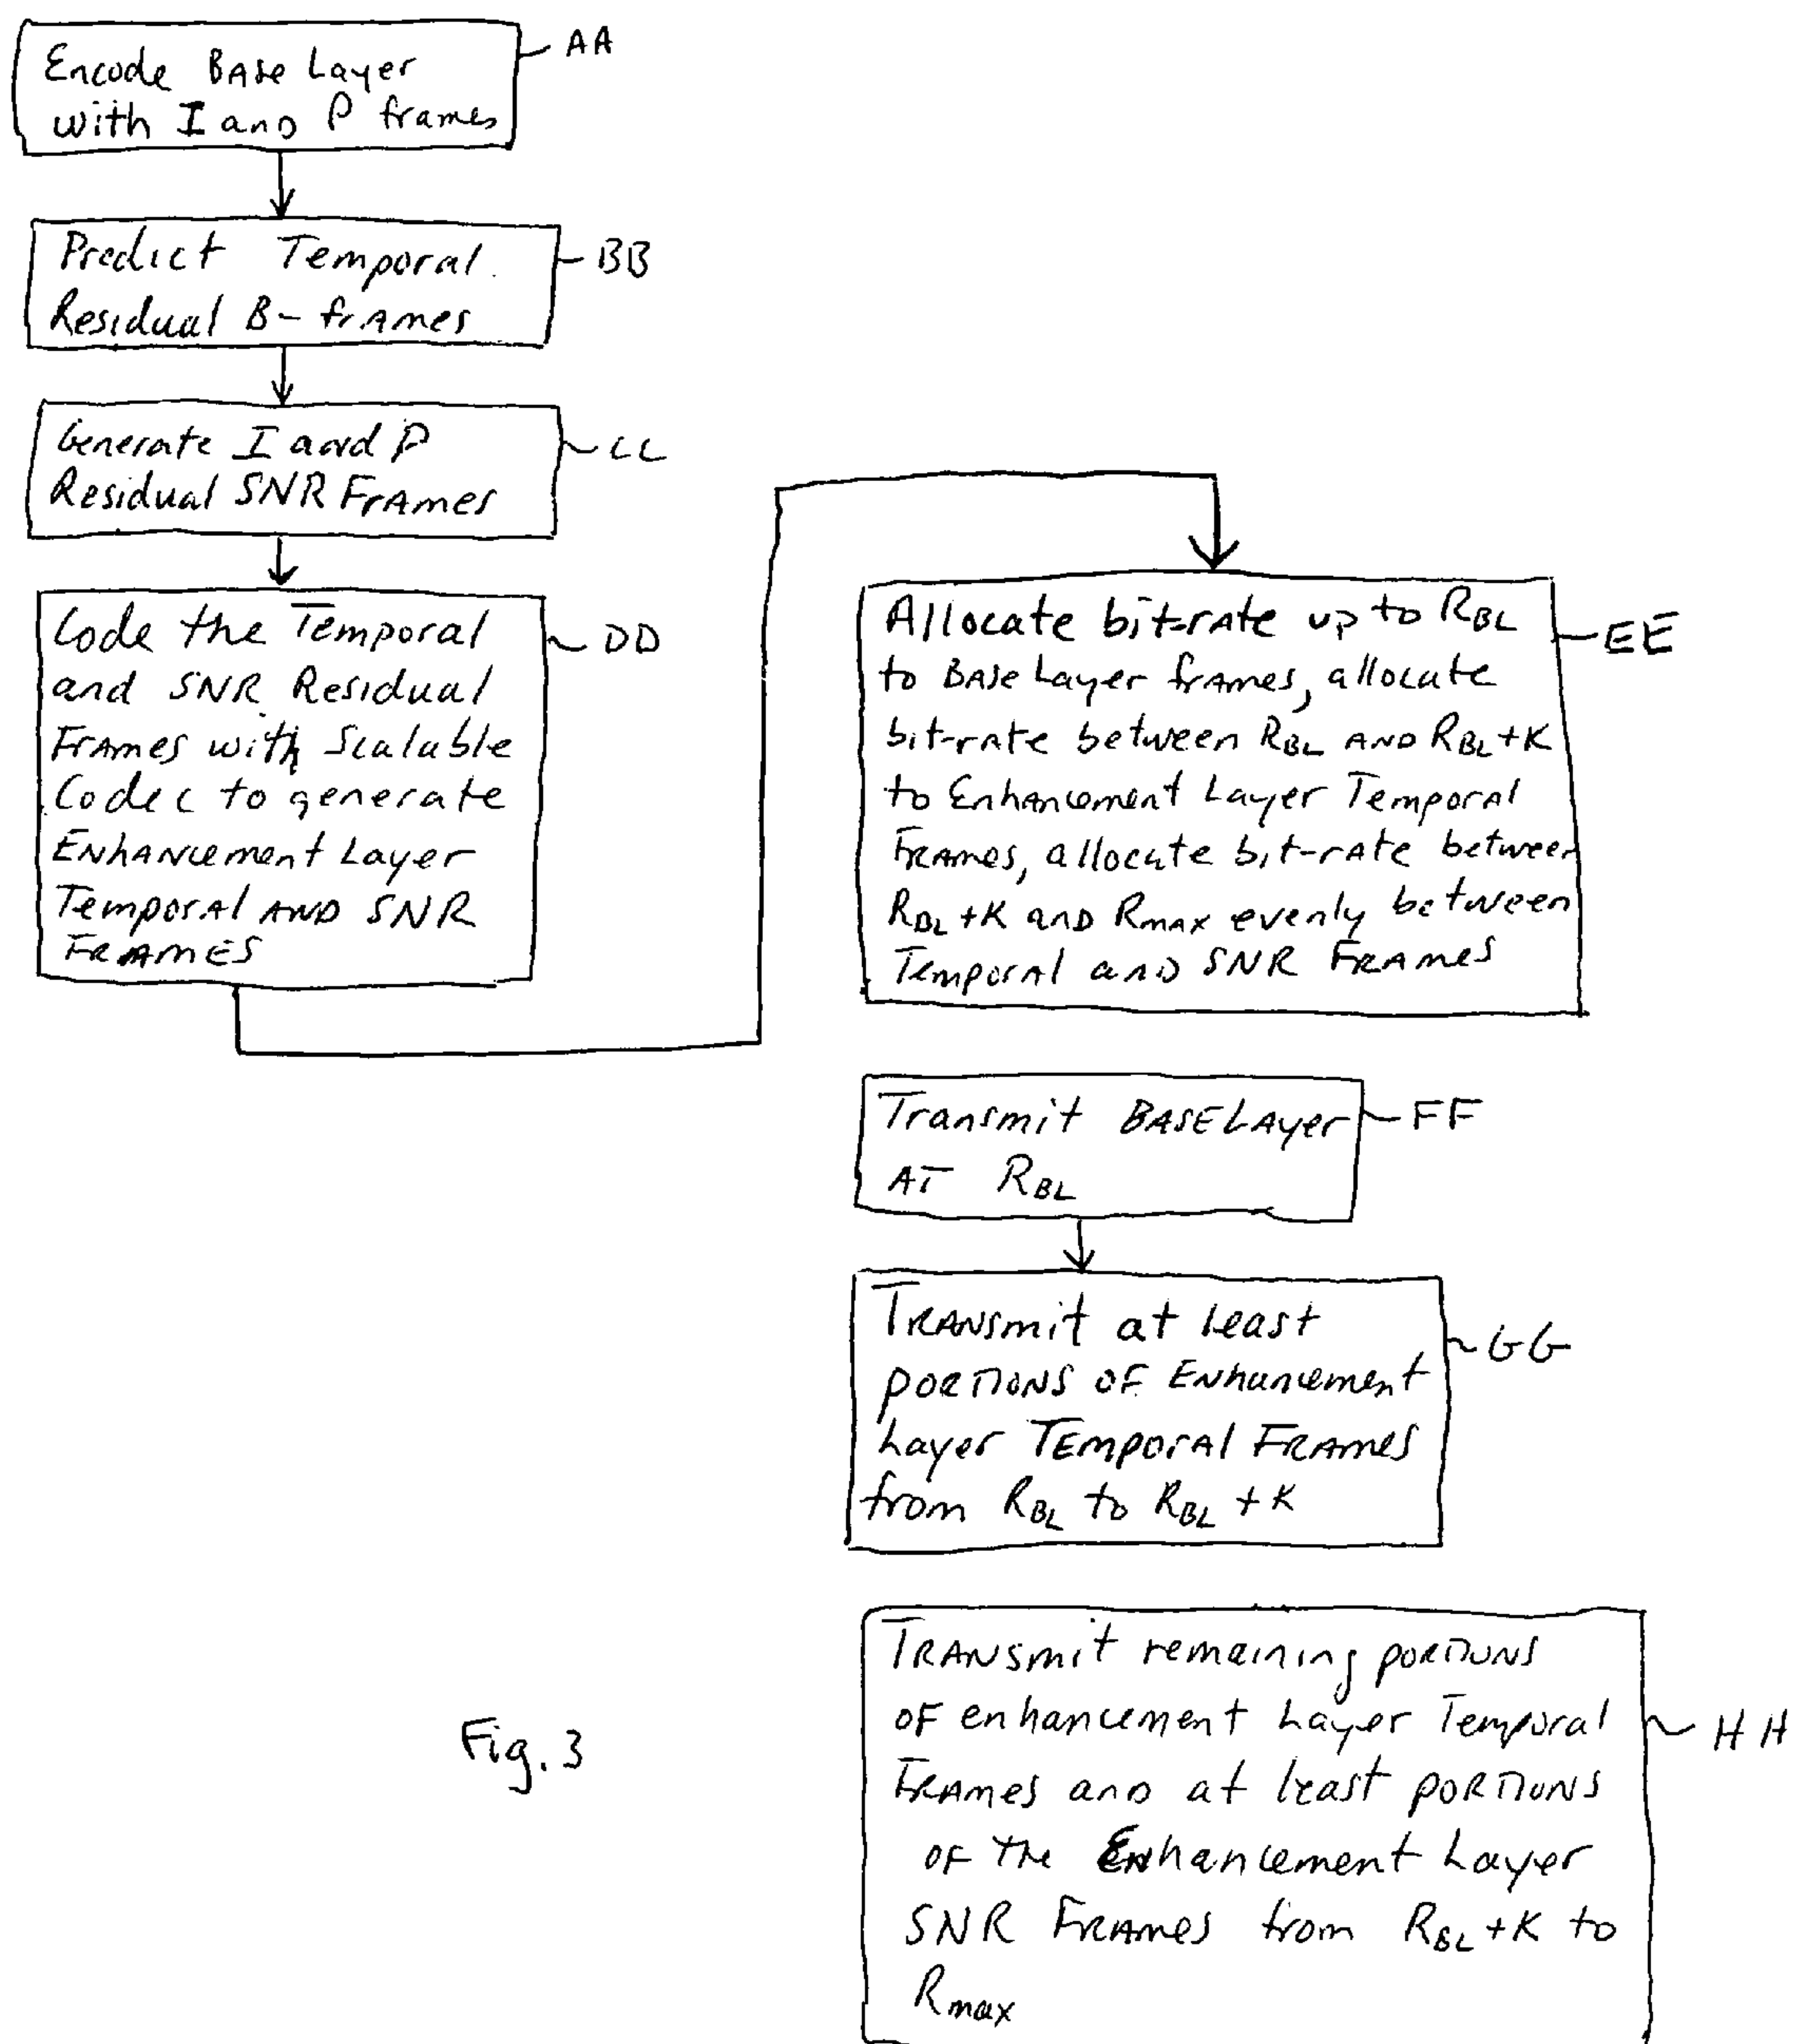 Encode Base Layer
with I and P frames
AA
Predict Temporal
Residual B-frames
BB
Generate I and P
Residual SNR Frames
CC
Code the Temporal
and SNR Residual
Frames with Scalable
Codec to generate
Enhancement Layer
Temporal and SNR
Frames
DD
Allocate bit-rate up to RBL
to Base Layer frames, allocate
bit-rate between RBL and RBL+K
to Enhancement Layer Temporal
Frames, allocate bit-rate between
RBL+K and Rmax evenly between
Temporal and SNR Frames
EE
Transmit Base Layer
at RBL
FF
Transmit at least
portions of Enhancement
Layer Temporal Frames
from RBL to RBL+K
GG
Transmit remaining portions
of enhancement Layer Temporal
Frames and at least portions
of the Enhancement Layer
SNR Frames from RBL+K to
Rmax
HH
Fig. 3